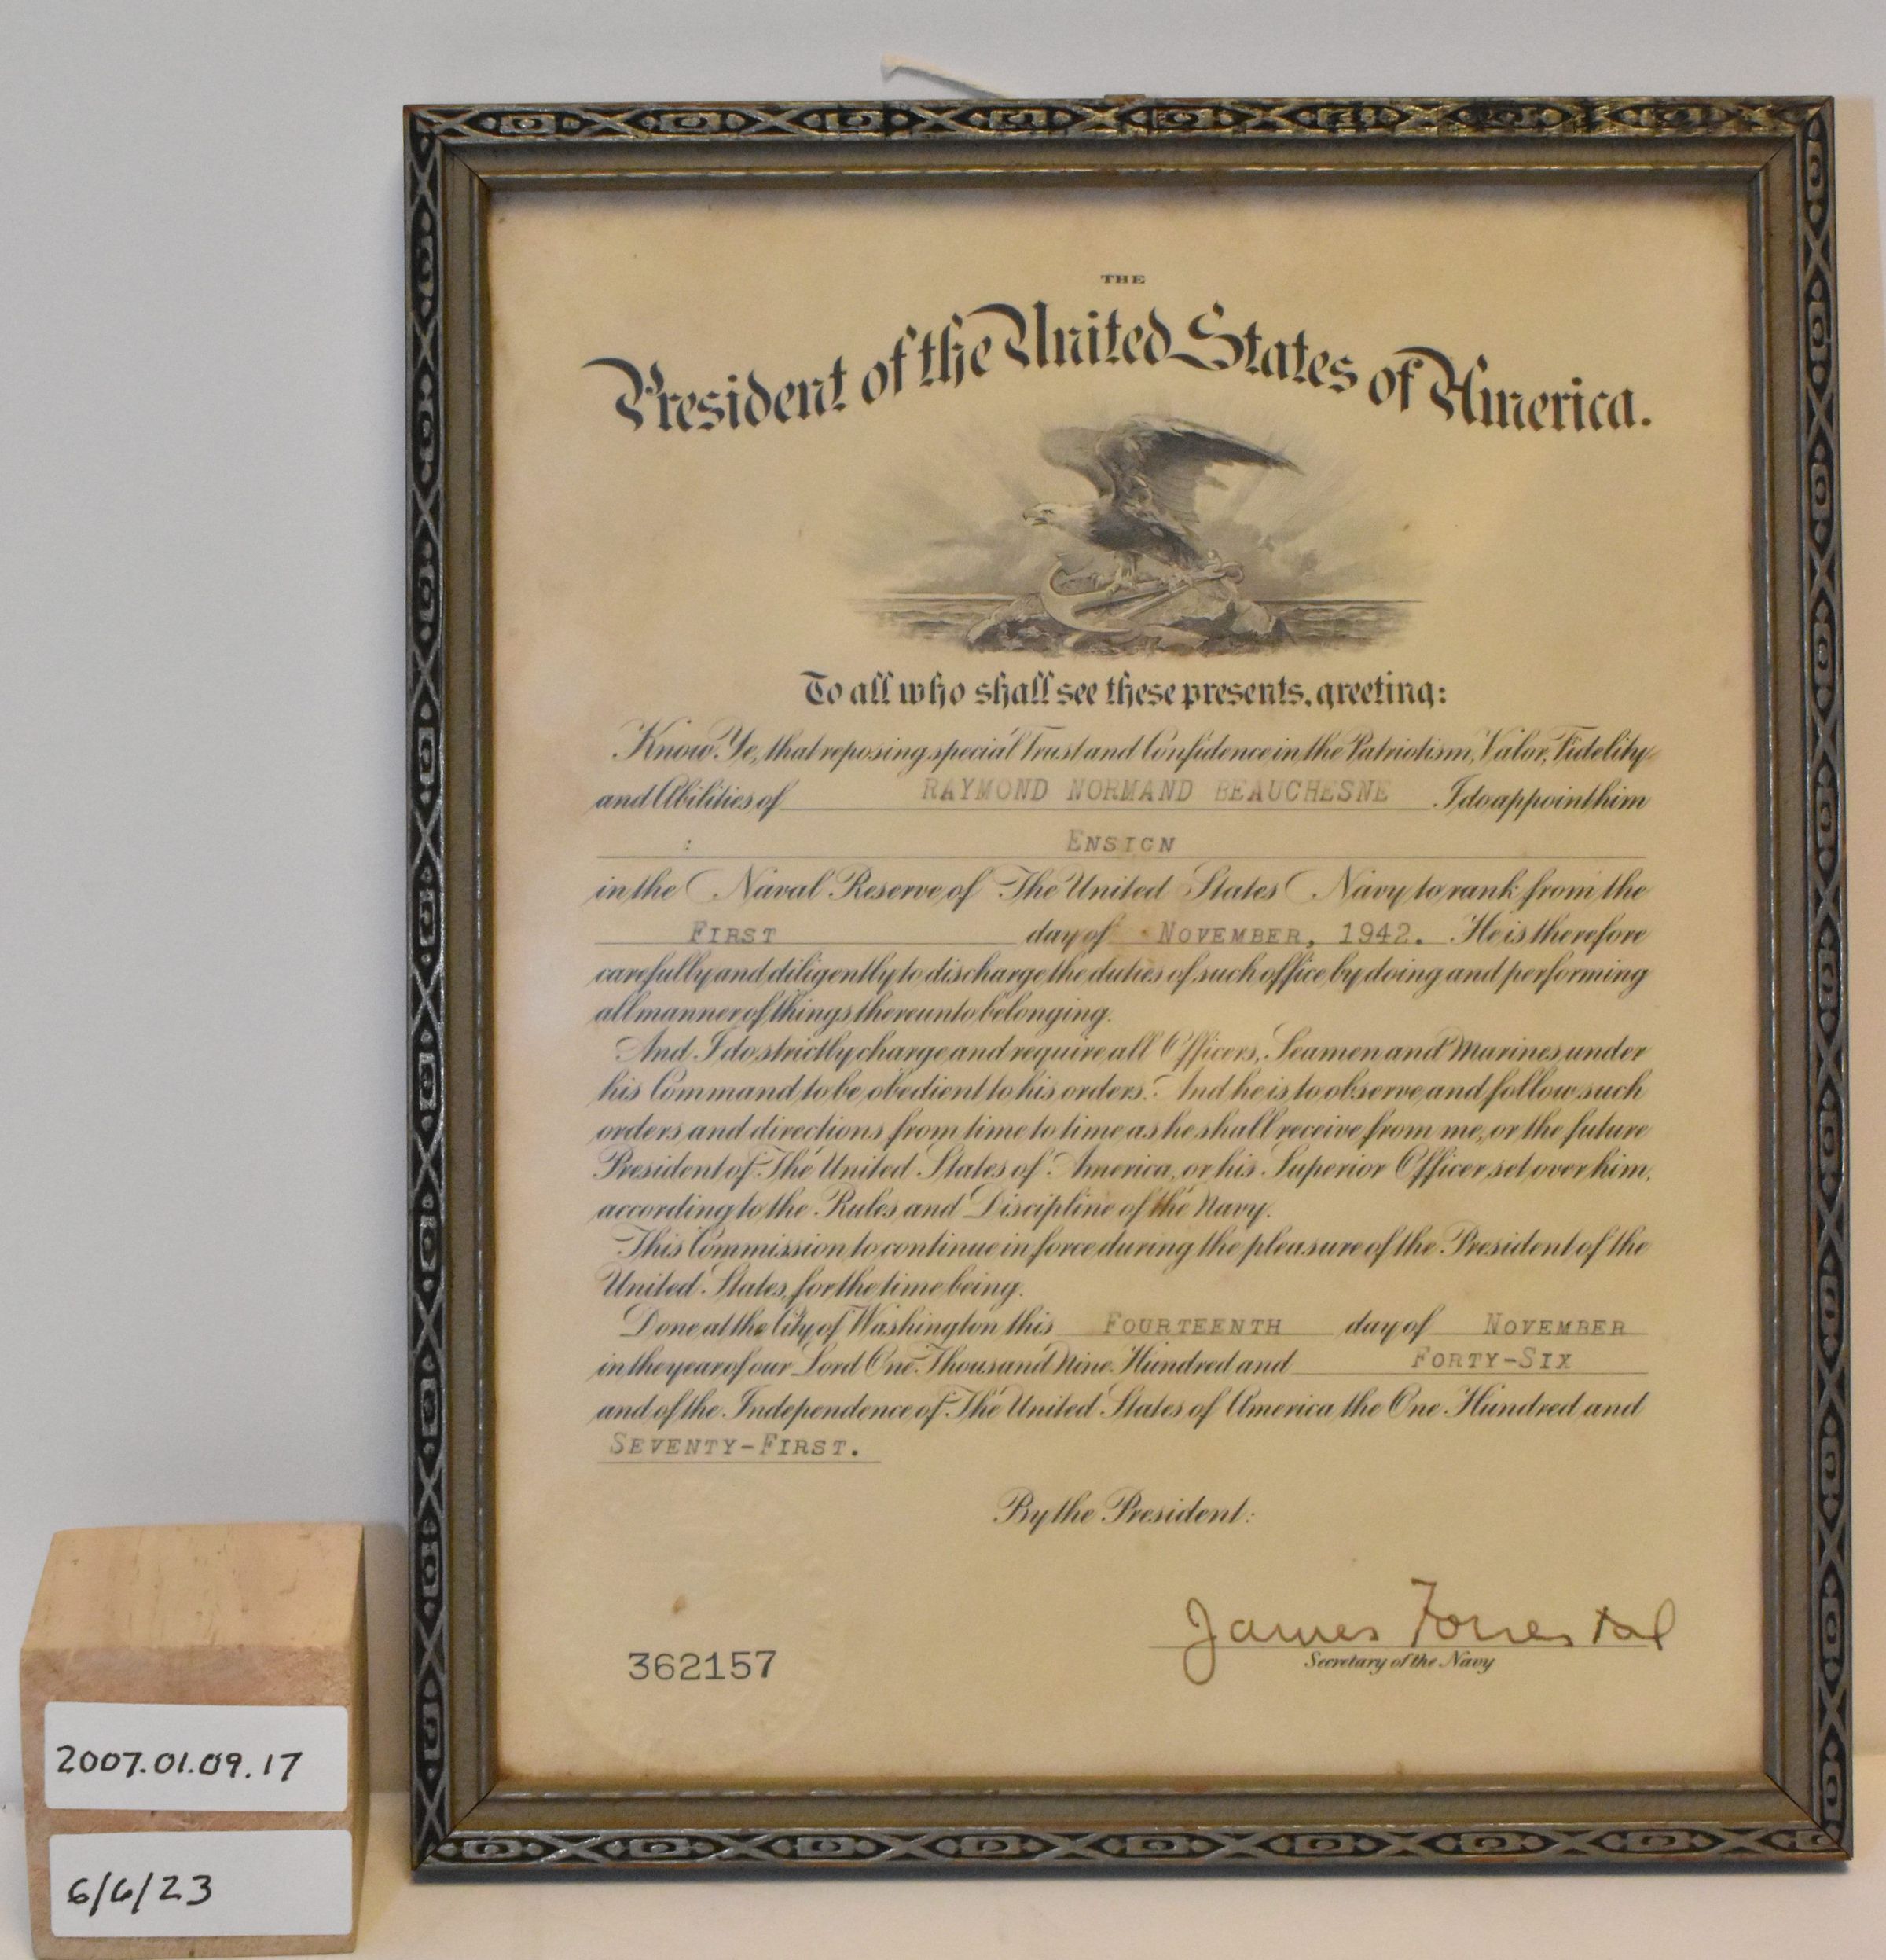 THE
President of the United States of America.
To all who shall see these presents, greeting:
Know Ye, that reposing special Trust and Confidence in the Patriotism, Valor, Fidelity
and Abilities of RAYMOND NORMAND BEAUCHESNE I do appoint him
: ENSIGN
in the Naval Reserve of The United States Navy to rank from the
FIRST day of NOVEMBER, 1942. He is therefore
carefully and diligently to discharge the duties of such office by doing and performing
all manner of things thereunto belonging.
And I do strictly charge and require all Officers, Seamen and Marines under
his Command to be obedient to his orders. And he is to observe and follow such
orders and directions from time to time as he shall receive from me, or the future
President of The United States of America, or his Superior Officer set over him,
according to the Rules and Discipline of the Navy.
This Commission to continue in force during the pleasure of the President of the
United States, for the time being.
Done at the City of Washington this FOURTEENTH day of NOVEMBER
in the year of our Lord One Thousand Nine Hundred and FORTY-SIX
and of the Independence of The United States of America the One Hundred and
SEVENTY-FIRST.
By the President:
James Forrestal
Secretary of the Navy
362157
2007.01.09.17
6/6/23